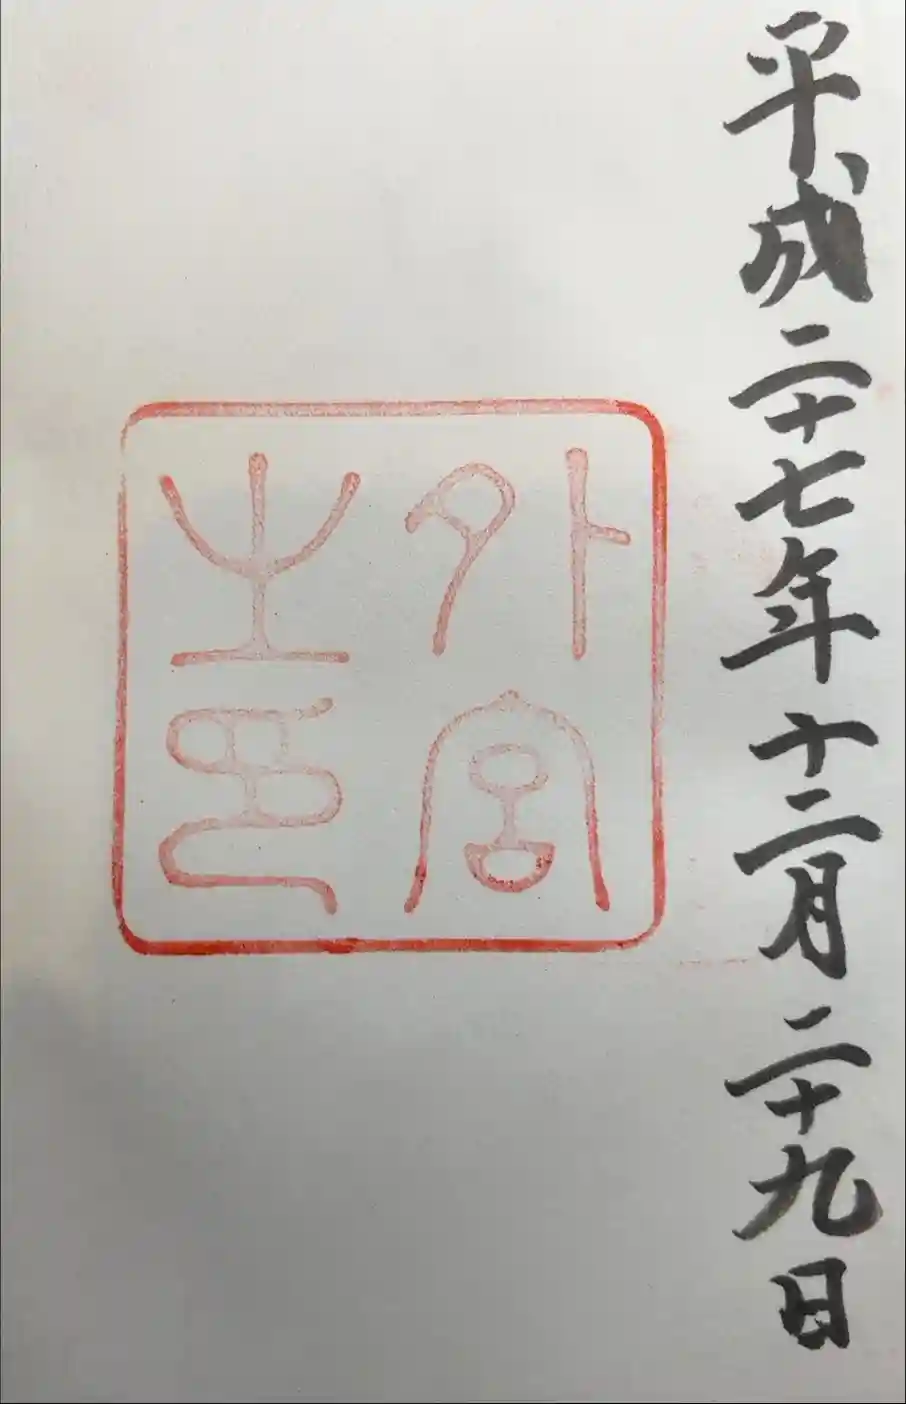 平成二十七年十二月二十九日
外宮
之印